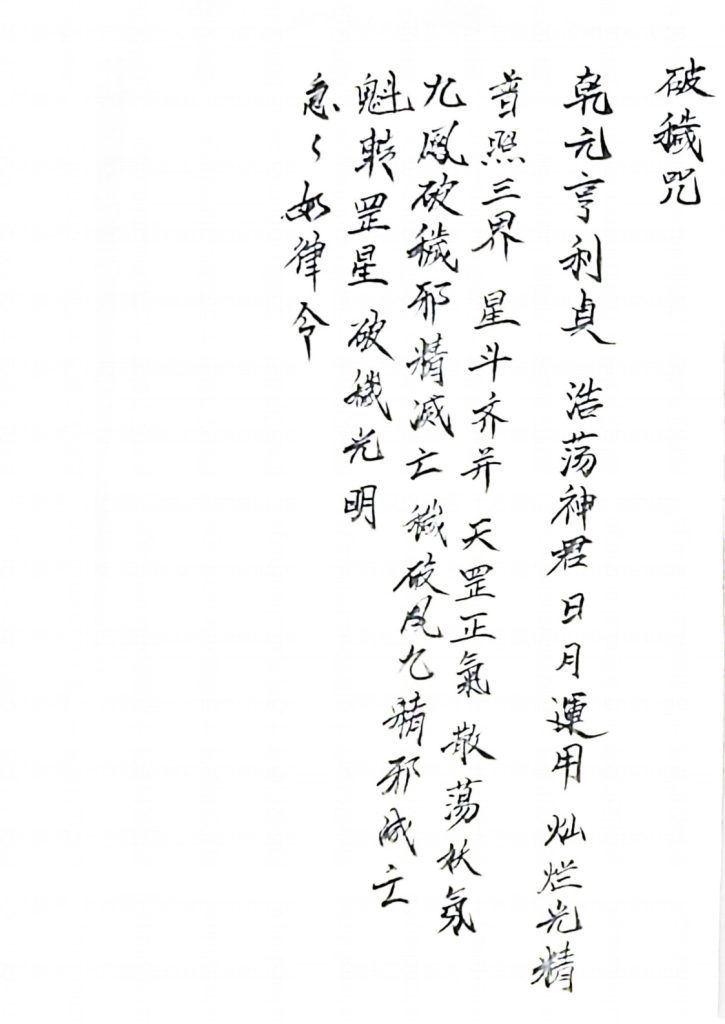 破穢咒
乾元亨利貞 浩荡神君日月運用灿烂光精
普照三界 星斗齐并 天罡正氣 散荡妖氛
九鳳破穢邪精滅亡穢破凤九精邪滅亡
魁轉罡星 破穢光明
急々如律令